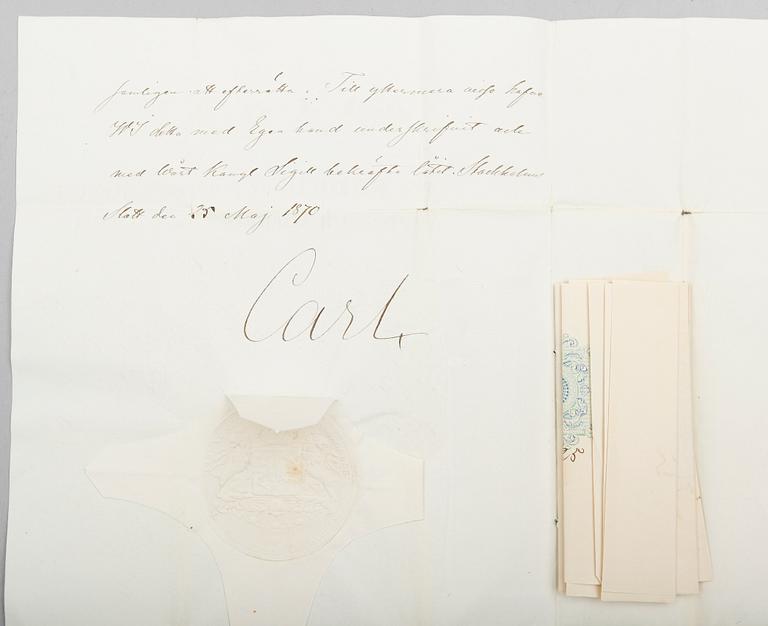 samtligen att efterrätta. Till yttermera visso hafve
Wi detta med Egen hand underskrifvit och
med Wårt Kongl Sigill bekräfta låtit. Stockholms
Slott den 25 Maj 1870
Carl